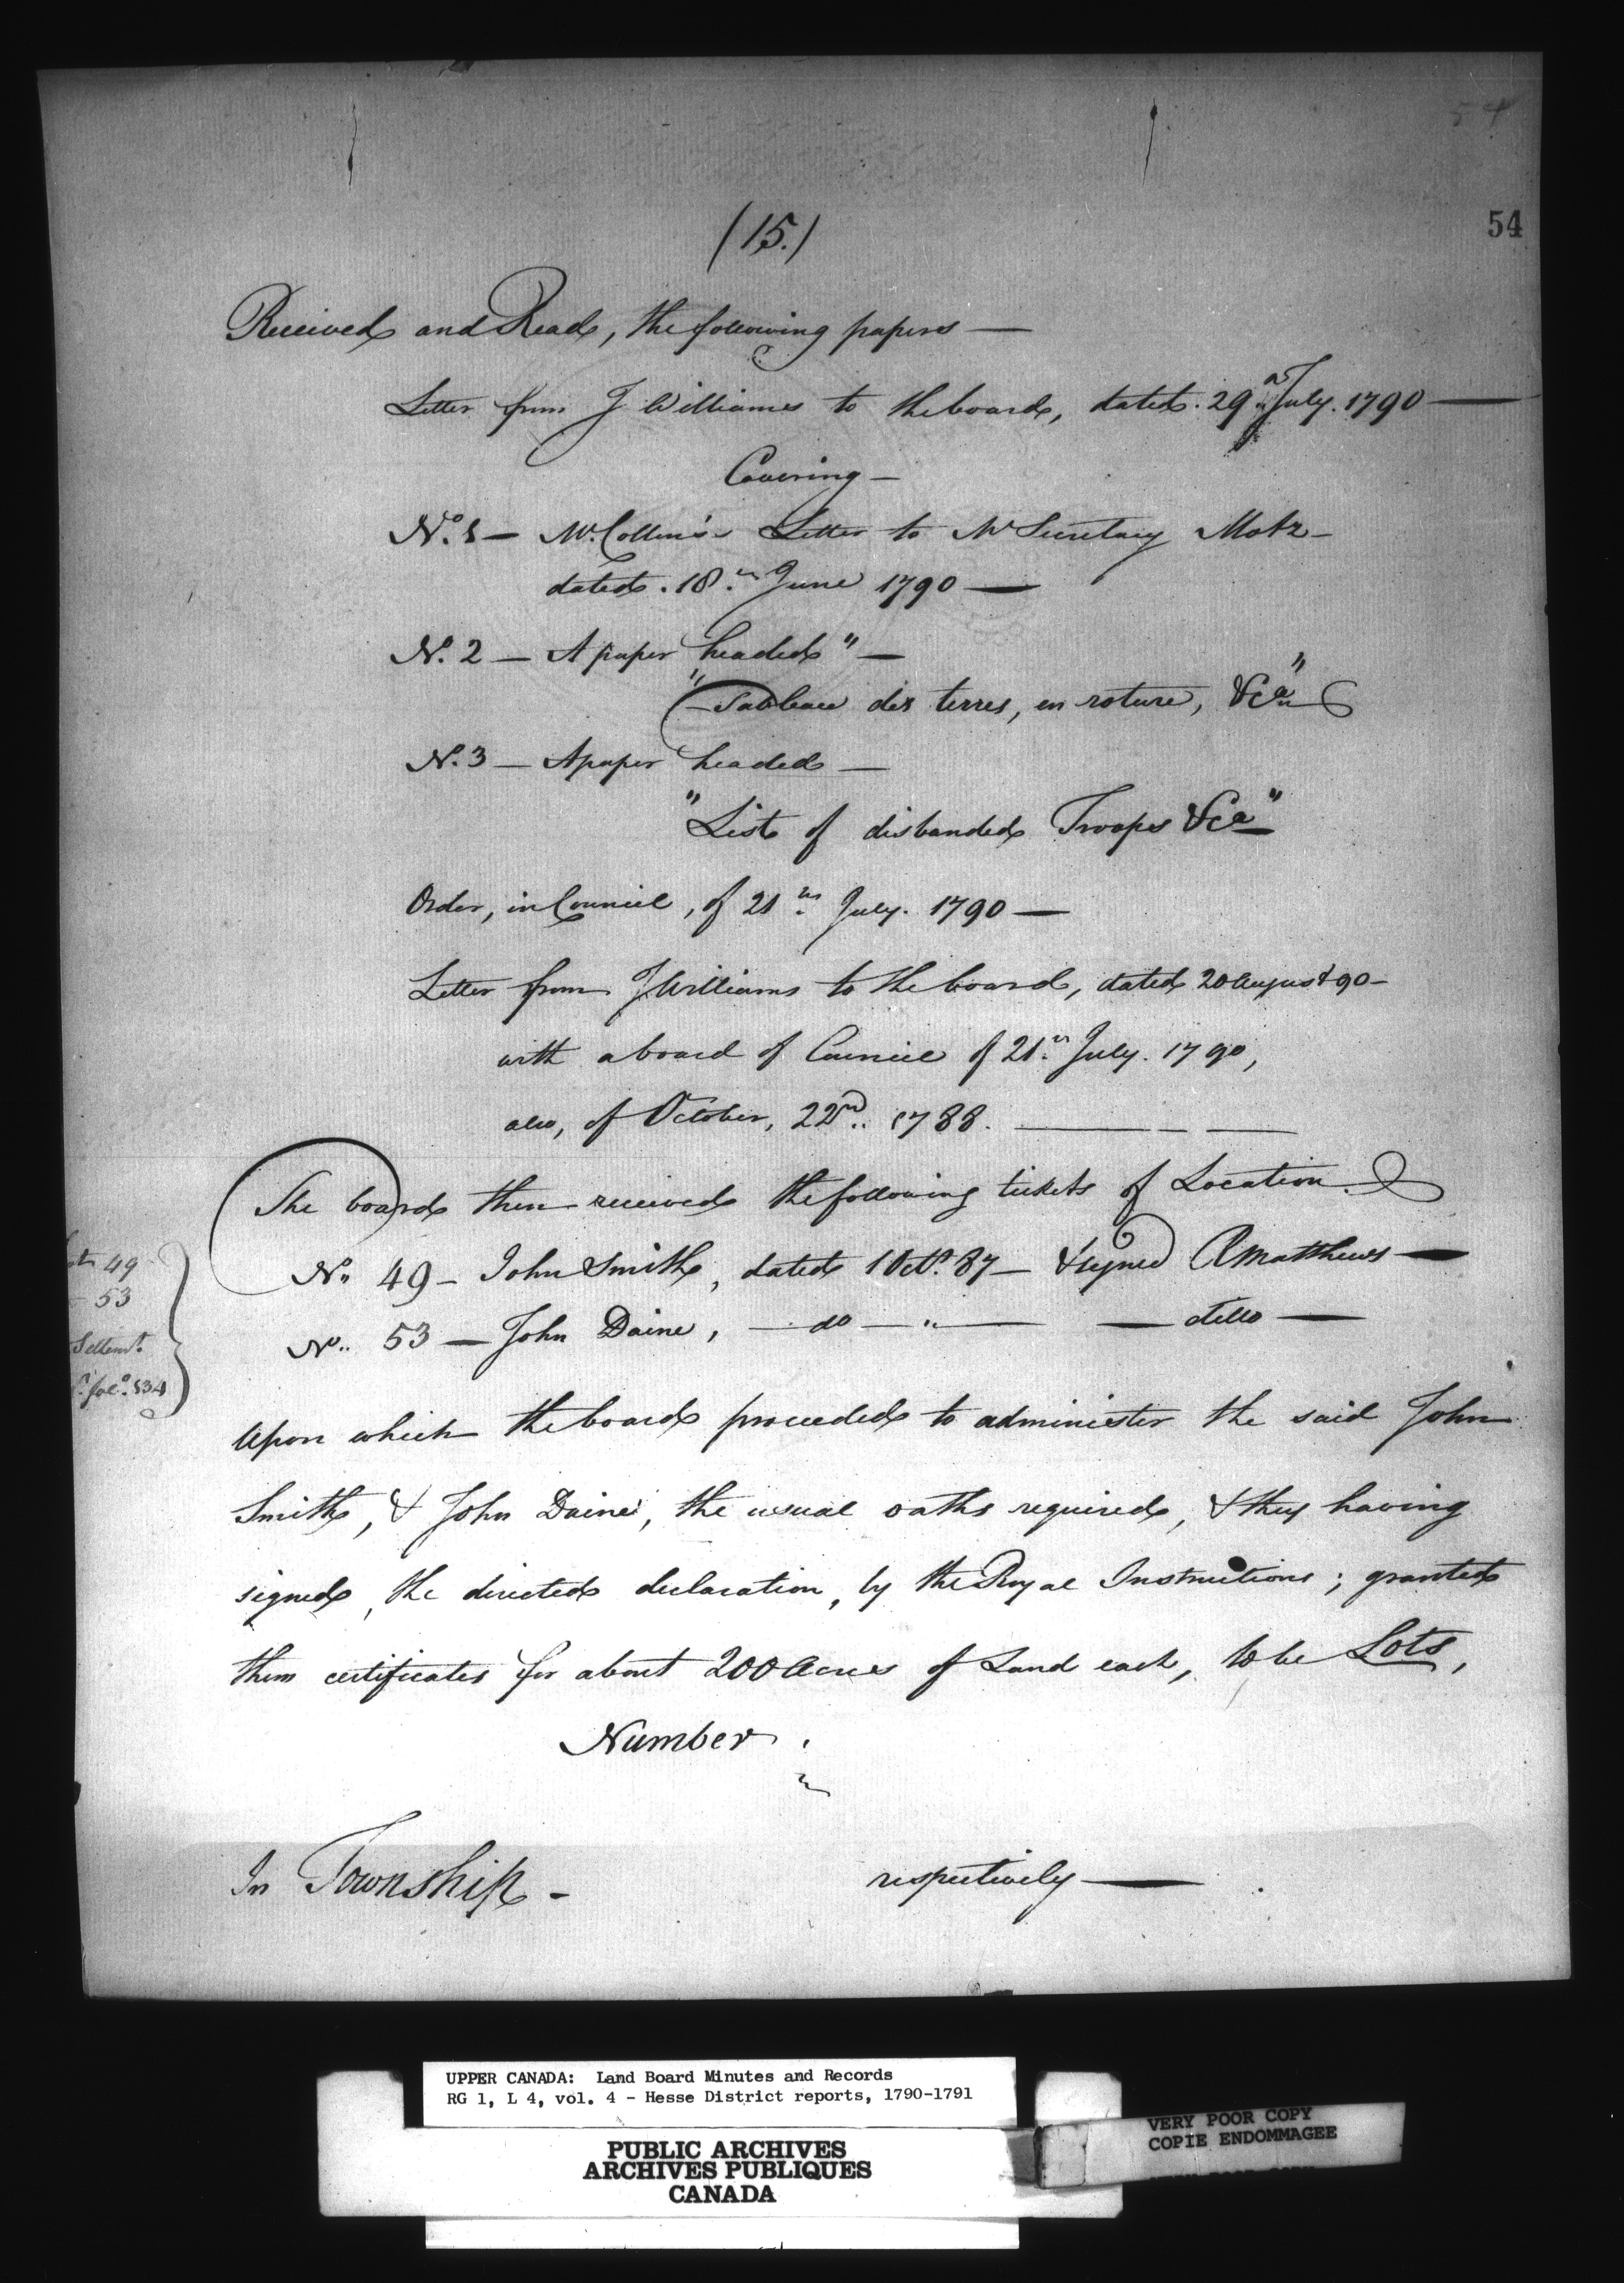 54
54
(15.)
Received and Read, the following papers —
Letter from J Williams to the board, dated. 29 July. 1790 —
Covering —
No. 1 — Mr. Collins's Letter to Mr Secretary Motz —
dated. 18th June 1790 —
No. 2 — A paper headed" —
"Tableau des terres, en roture, &ca"
No. 3 — A paper headed —
"List of disbanded Troops &ca"
Order, in Council, of 21st July. 1790 —
Letter from J Williams to the board, dated 20 August 90 —
with aboard of Council of 21st July. 1790,
also, of October, 22nd.. 1788. — — —
The board then received the following tickets of Location.
No. 49 — John Smith, dated 1 Octr. 87 — & signed RMatthews —
No. 53 — John Daine, — do — " — — ditto —
49
— 53
Settlemt.
fol.o 134
Upon which the board proceeded to administer the said John
Smith, & John Daine, the usual oaths required, & they having
signed, the directed declaration, by the Royal Instructions; granted
them certificates for about 200 Acres of Land each, to be Lots,
Number.
In Township — respectively —
UPPER CANADA: Land Board Minutes and Records
RG 1, L 4, vol. 4 - Hesse District reports, 1790-1791
PUBLIC ARCHIVES
ARCHIVES PUBLIQUES
CANADA
VERY POOR COPY
COPIE ENDOMMAGEE